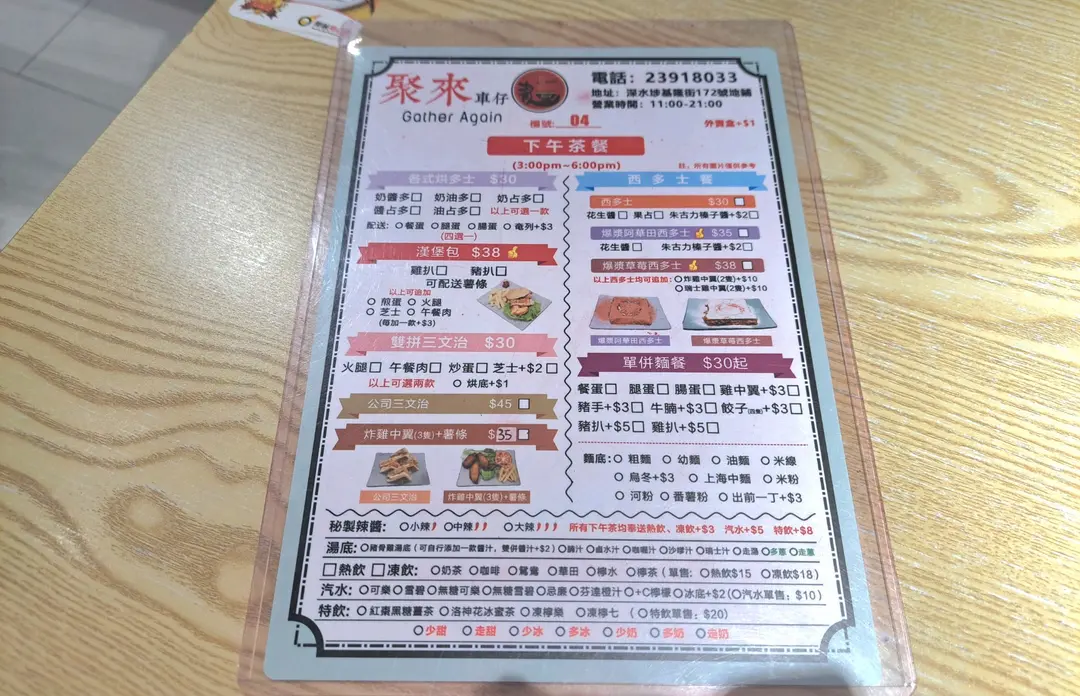 聚來車仔麵
Gather Again
電話：23918033
地址：深水埗基隆街172號地鋪
營業時間：11:00-21:00
檯號: 04
外賣盒+$1
下午茶餐
(3:00pm~6:00pm)
註：所有圖片僅供參考
各式烘多士 $30
奶醬多□ 奶油多□ 奶占多□
醬占多□ 油占多□ 以上可選一款
配送：○餐蛋 ○腿蛋 ○腸蛋 ○奄列+$3
(四選一)
漢堡包 $38
雞扒□ 豬扒□
可配送薯條
以上可追加
○ 煎蛋 ○ 火腿
○ 芝士 ○ 午餐肉
(每加一款+$3)
雙拼三文治 $30
火腿□ 午餐肉□ 炒蛋□ 芝士+$2□
以上可選兩款 ○ 烘底+$1
公司三文治 $45 □
炸雞中翼(3隻)+薯條 $35 □
公司三文治
炸雞中翼(3隻)+薯條
西多士餐
西多士 $30 □
花生醬□ 果占□ 朱古力榛子醬+$2□
爆漿阿華田西多士 $35 □
花生醬□ 朱古力榛子醬+$2□
爆漿草莓西多士 $38 □
以上西多士均可追加：○炸雞中翼(2隻)+$10
○瑞士雞中翼(2隻)+$10
爆漿阿華田西多士
爆漿草莓西多士
單併麵餐 $30起
餐蛋□ 腿蛋□ 腸蛋□ 雞中翼+$3□
豬手+$3□ 牛腩+$3□ 餃子(四隻)+$3□
豬扒+$5□ 雞扒+$5□
麵底：○ 粗麵 ○ 幼麵 ○ 油麵 ○ 米線
○ 烏冬+$3 ○ 上海中麵 ○ 米粉
○ 河粉 ○ 番薯粉 ○ 出前一丁+$3
秘製辣醬： ○小辣 ○中辣 ○大辣 所有下午茶均奉送熱飲、凍飲+$3 汽水+$5 特飲+$8
湯底：○豬骨雞湯底（可自行添加一款醬汁，雙併醬汁+$2）○腩汁 ○鹵水汁 ○咖喱汁 ○沙嗲汁 ○瑞士汁 ○走湯 ○多蔥 ○走蔥
□熱飲 □凍飲： ○奶茶 ○咖啡 ○鴛鴦 ○華田 ○檸水 ○檸茶（單售：○熱飲$15 ○凍飲$18）
汽水：○可樂○雪碧○無糖可樂○無糖雪碧○忌廉○芬達橙汁 ○+C檸檬○冰底+$2(○汽水單售：$10）
特飲：○紅棗黑糖薑茶 ○洛神花冰蜜茶 ○凍檸樂 ○凍檸七 （○特飲單售：$20）
○少甜 ○走甜 ○少冰 ○多冰 ○少奶 ○多奶 ○走奶